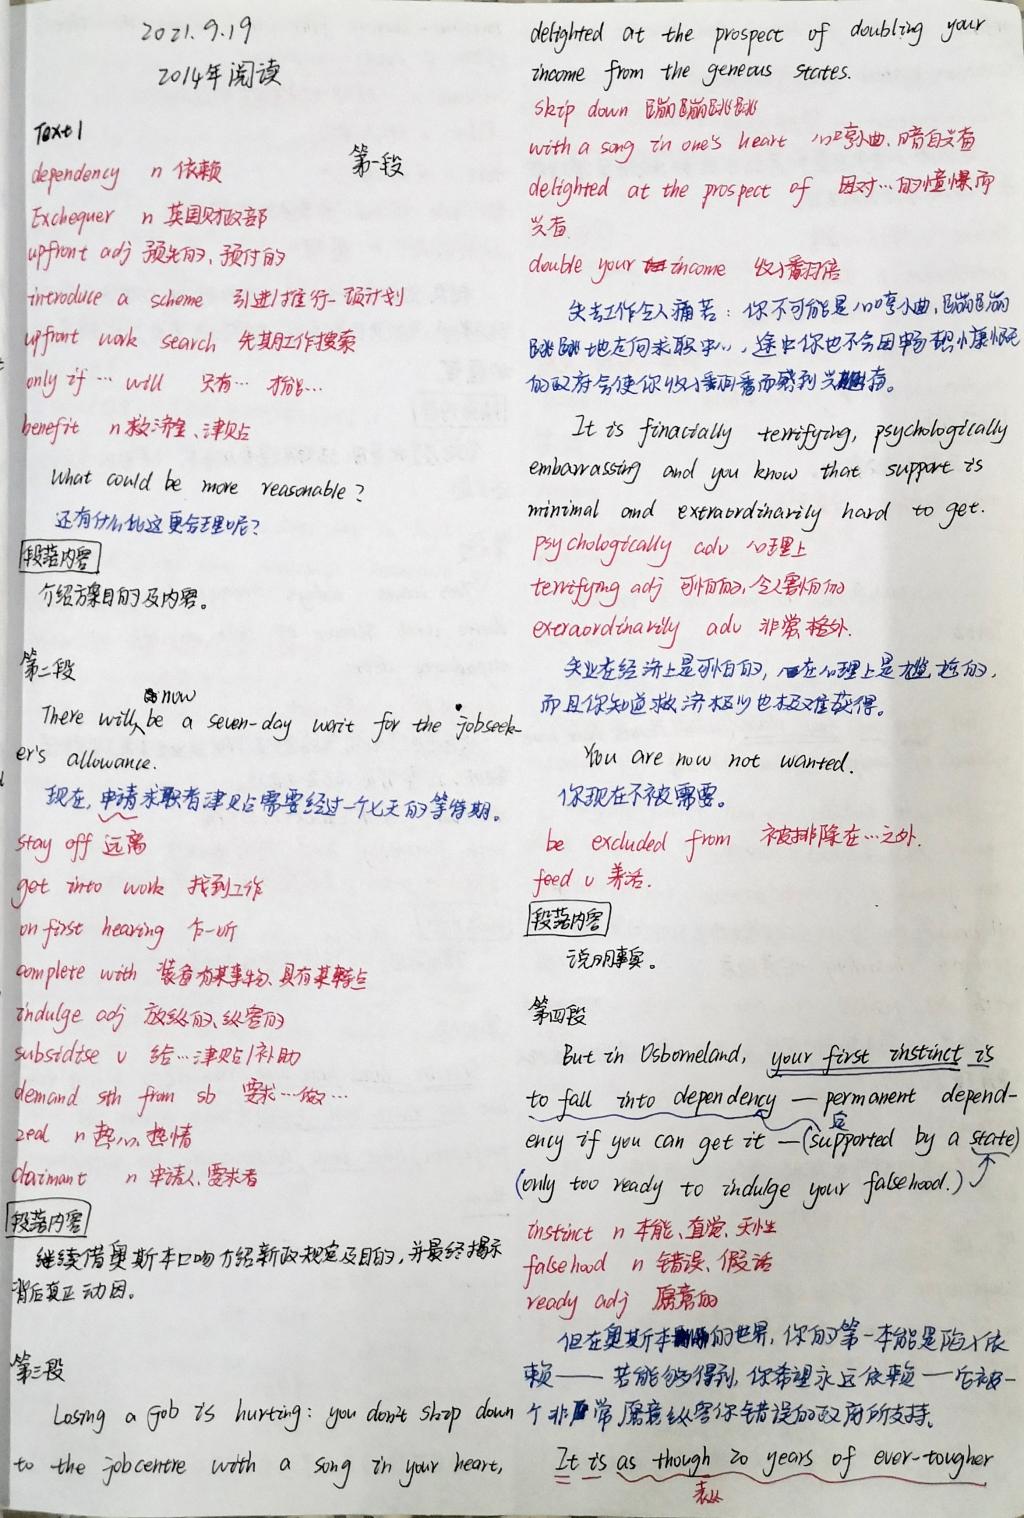 2021.9.19
2014年阅读
Text 1
第一段
dependency n 依赖
Exchequer n 英国财政部
upfront adj 预先的、预付的
introduce a scheme 引进/推行一项计划
upfront work search 先期工作搜索
only if … will 只有… 才能…
benefit n 救济金、津贴
What could be more reasonable?
还有什么比这更合理呢?
段落内容
介绍方案目的及内容。
第二段
now
There will be a seven-day wait for the jobseek-
er's allowance.
现在,申请求职者津贴需要经过一个七天的等待期。
stay off 远离
get into work 找到工作
on first hearing 乍一听
complete with 装备有某事物、具有某特点
indulge adj 放纵的、纵容的
subsidise v 给…津贴/补助
demand sth from sb 要求…做…
zeal n 热心、热情
claimant n 申请人、要求者
段落内容
继续借奥斯本口吻介绍新政规定及目的,并最终揭示
背后真正动因。
第三段
Losing a job is hurting: you don't skip down
to the jobcentre with a song in your heart,
delighted at the prospect of doubling your
income from the geneous states.
skip down 蹦蹦跳跳
with a song in one's heart 心哼小曲、暗自兴奋
delighted at the prospect of 因对…的憧憬而
兴奋
double your income 收入翻倍
失去工作令人痛苦:你不可能是心哼小曲,蹦蹦
跳跳地走向求职中心,途中你也不会因畅想慷慨
的政府会使你收入翻番而感到兴奋。
It is finacially terrifying, psychologically
embarrassing and you know that support is
minimal and extraordinarily hard to get.
psychologically adv 心理上
terrifying adj 可怕的,令人害怕的
extraordinarily adv 非常格外.
失业在经济上是可怕的,在心理上是尴尬的,
而且你知道救济极少也极难获得。
You are now not wanted.
你现在不被需要。
be excluded from 被排除在…之外.
feed v 养活.
段落内容
说明事实。
第四段
But in Osborneland, your first instinct is
to fall into dependency — permanent depend-
定
ency if you can get it — (supported by a state)
(only too ready to indulge your falsehood.)
instinct n 本能、直觉、天性
falsehood n 错误、假话
ready adj 愿意的
但在奥斯本的世界,你的第一本能是陷入依
赖 —— 若能够得到,你希望永远依赖 — 后被一
个非常愿意纵容你错误的政府所支持.
It is as though 20 years of ever-tougher
表从